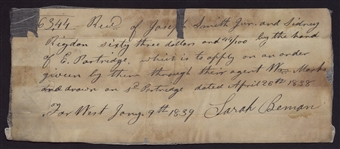 63.44 Recd. of Joseph Smith Jun. and Sidney
Rigdon sixty three dollars and 44/100 by the hand
of E. Partridge, which is to apply on an order
given by them through their agent Wm Marks
and drawn on sd Partridge dated April 26th 1838
Far West Jany. 9th 1839 Sarah Beman